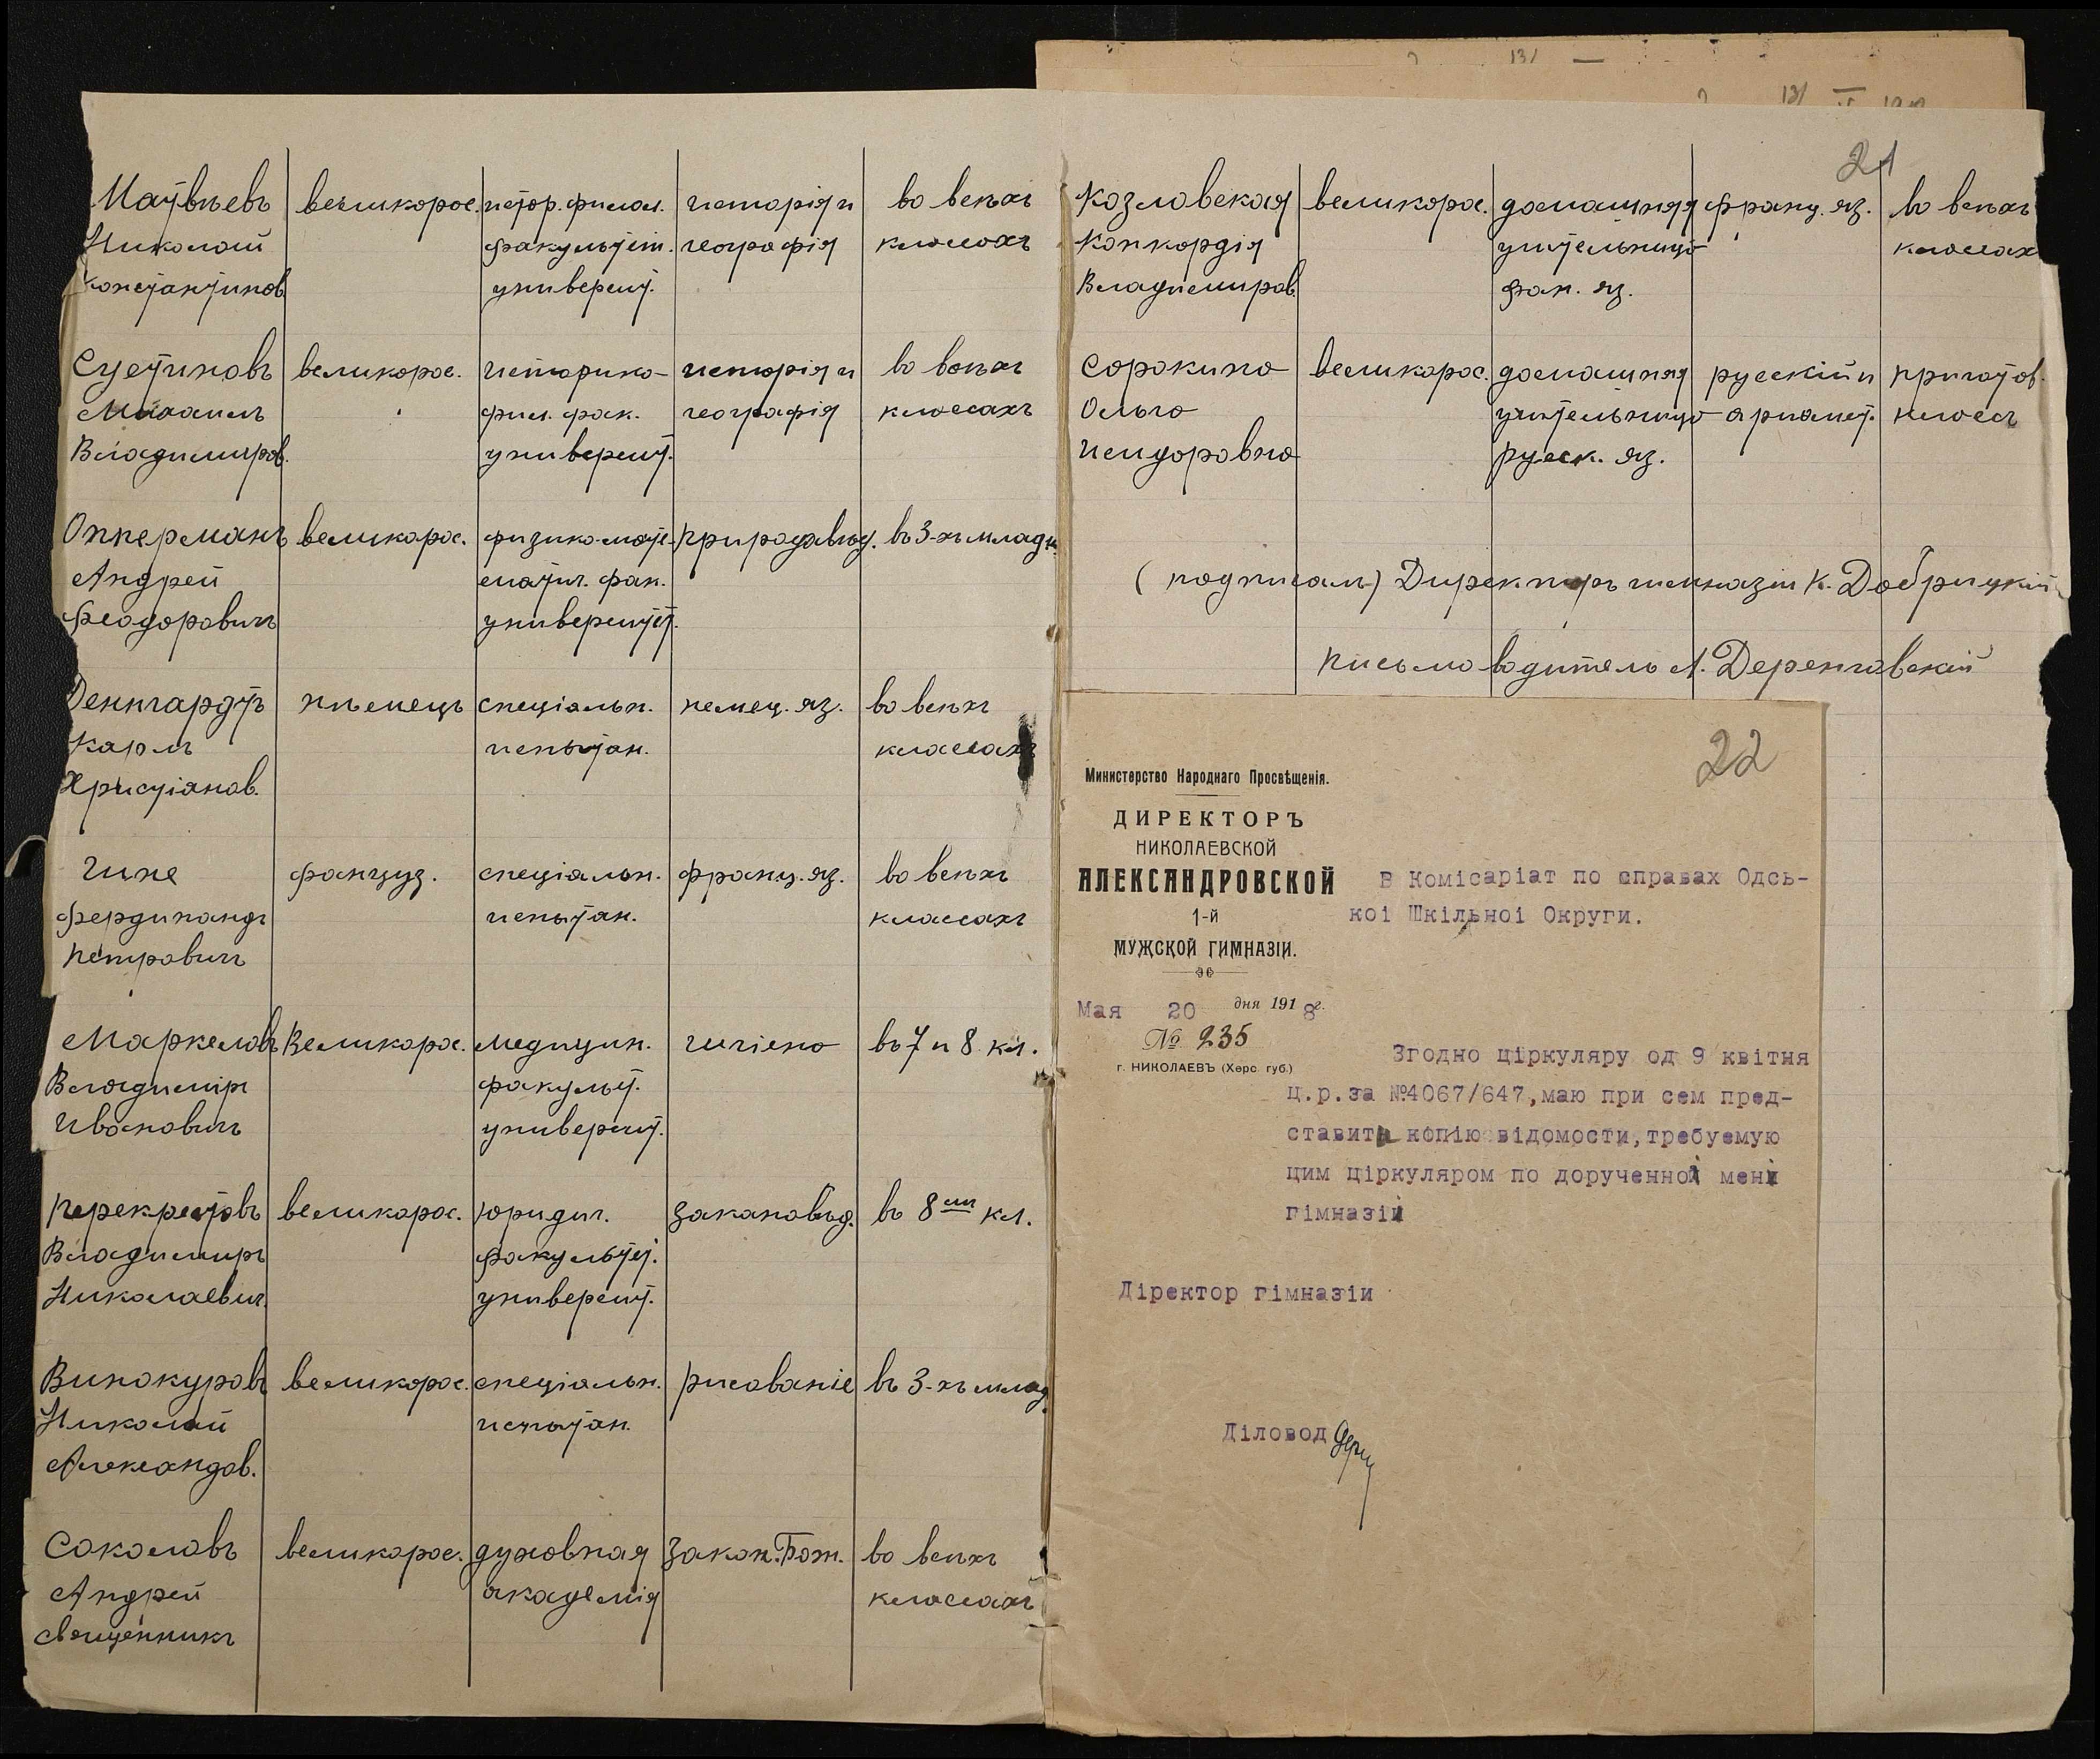 Матвѣевъ великорос. истор. филол. исторія и во всѣхъ
Николай факультет. географія классахъ
Константинов. университ.
Суетиновъ великорос. историко- исторія и во всѣхъ
Михаилъ фил. фак. географія классахъ
Владимиров. университ.
Опперманъ великорос. физико-мате- природовѣд. въ 3-хъ младш.
Андрей матич. фак.
Феодоровичъ университет.
Денгардтъ нѣмецъ спеціальн. немец. яз. во всѣхъ
Карлъ испытан. классахъ
Христіанов.
Гине француз. спеціальн. франц. яз. во всѣхъ
Фердинандъ испытан. классахъ
Петровичъ
Маркеловъ великорос. медицин. гигіена въ 7 и 8 кл.
Владиміръ факульт.
Ивановичъ университ.
Перекрестовъ великорос. юридич. законовѣд. въ 8мъ кл.
Владимиръ факультет.
Николаевич. университ.
Винокуровъ великорос. спеціальн. рисованіе въ 3-хъ млад.
Николай испытан.
Александов.
Соколовъ великорос. духовная закон. Бож. во всѣхъ
Андрей академія классахъ
священникъ
21
Козловская великорос. домашняя франц. яз. во всѣхъ
Конкордія учительница классах
Владимиров. фран. яз.
Сорокина великорос. домашняя русскій и приготов.
Ольга учительница арифмет. классъ
Исидоровна русск. яз.
(подписал) Директоръ гимназіи К. Добрицкій
письмоводитель А. Деренговскій
22
Министерство Народнаго Просвѣщенія.
ДИРЕКТОРЪ
НИКОЛАЕВСКОЙ
АЛЕКСАНДРОВСКОЙ
1-й
МУЖСКОЙ ГИМНАЗІИ.
Мая 20 дня 1918 г.
№ 235
г. НИКОЛАЕВЪ (Херс. губ.)
В Комісаріат по справах Одсь-
коі Шкільноі Округи.
Згодно ціркуляру од 9 квітня
ц.р.за №4067/647,маю при сем пред-
ставить копію відомости,требуемую
цим ціркуляром по дорученноі мені
гімназіи
Діректор гімназіи
Діловод